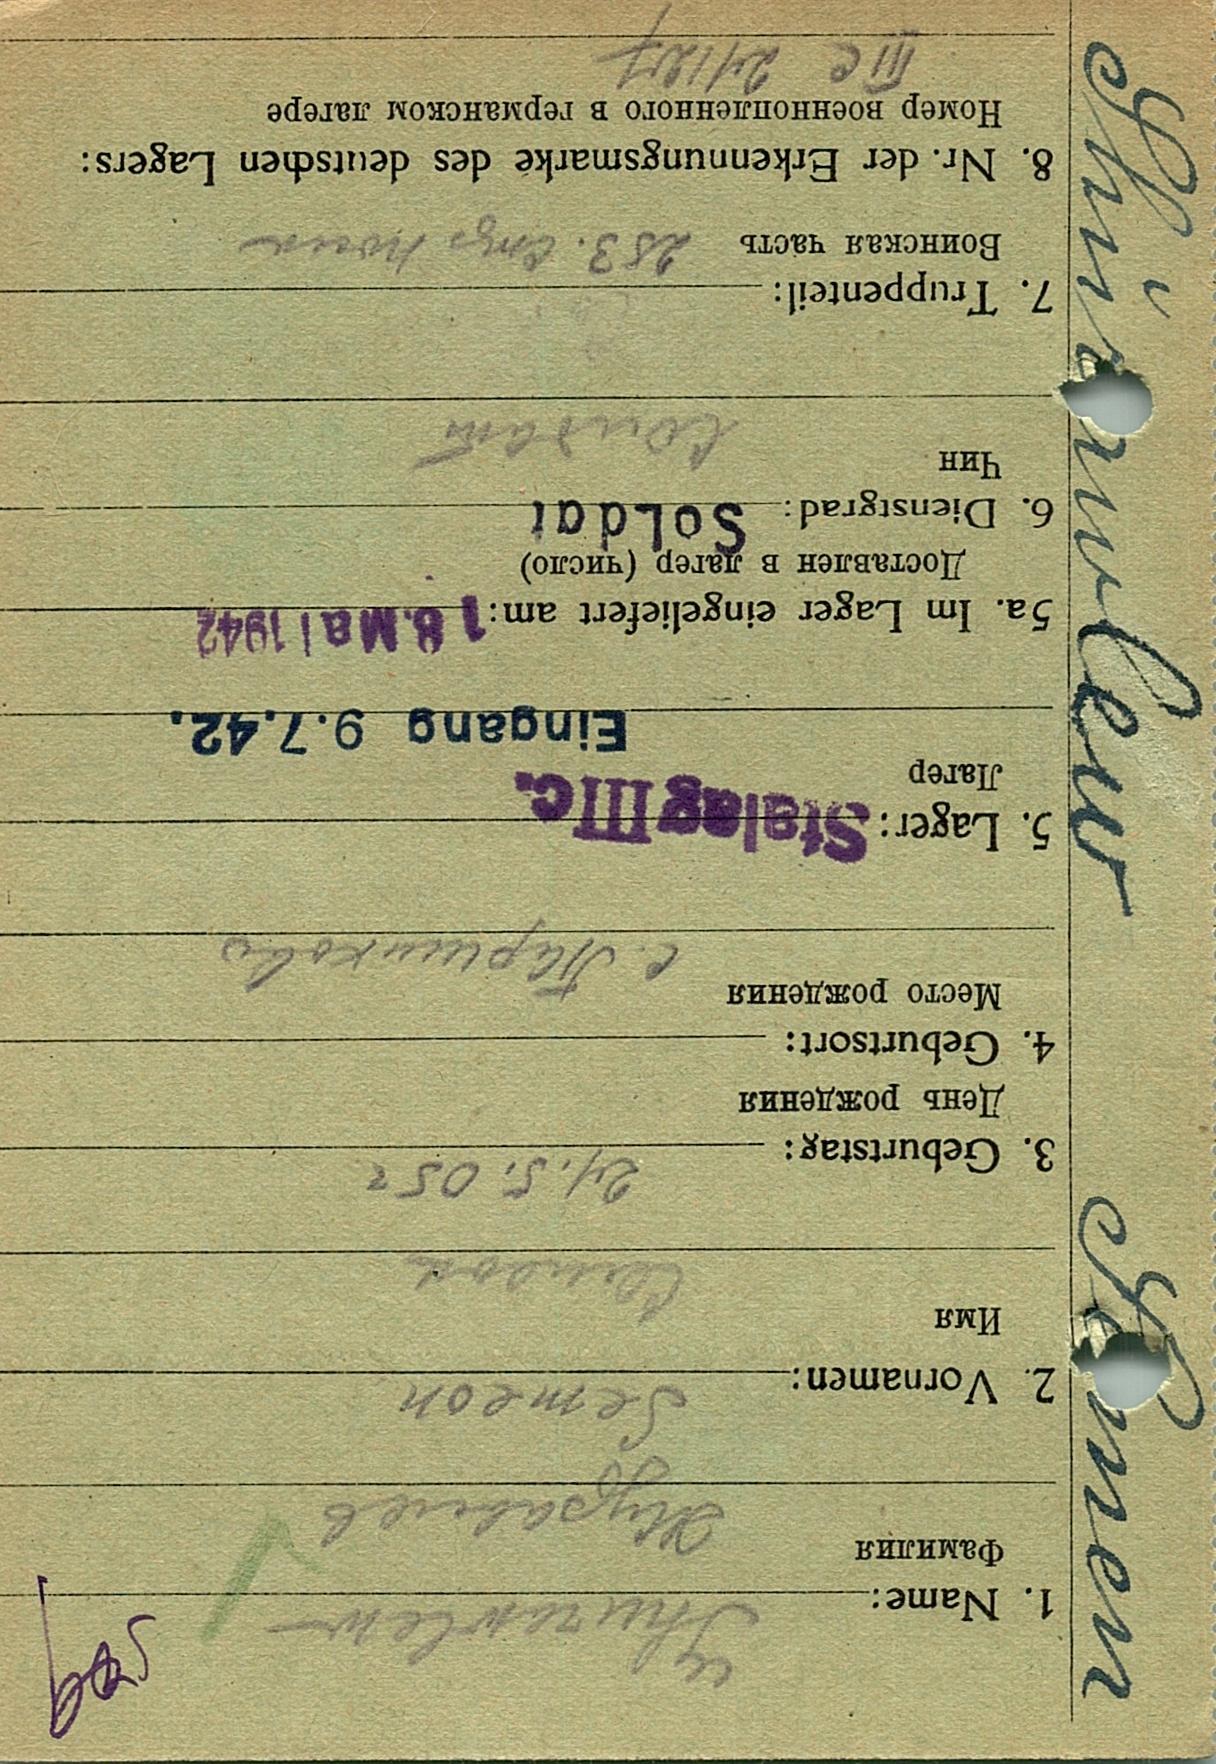 1. Name: Shurawlew
Фамилия Журавлев
2. Vornamen: Semeon
Имя Семеон
3. Geburtstag: 21.5.05 г
День рождения
4. Geburtsort:
Место рождения с. Паршиково
5. Lager: Stalag IIIc.
Лагер
Eingang 9.7.42.
5a. Im Lager eingeliefert am: 18. Mai 1942
Доставлен в лагер (число)
6. Dienstgrad: Soldat
Чин Солдат
7. Truppenteil:
Воинская часть 253. стр. полк
8. Nr. der Erkennungsmarke des deutschen Lagers:
Номер военнопленного в германском лагере
III C
Shurawlew Semen